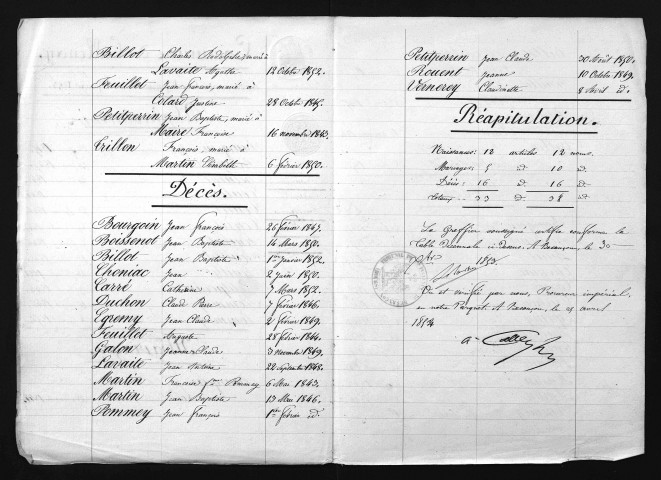 Billot Charles Rodolphe, marié à
Lavaite Agathe 12 Octobre 1852.
Feuillet Jean François, marié à
Cotard Justine 28 Octobre 1845.
Petitperrin Jean Baptiste, marié à
Maire Françoise 16 novembre 1842.
Crillon François, marié à
Martin Elisabeth 6 février 1850.
Décès.
Bourgoin Jean François 26 février 1847.
Boissenot Jean Baptiste 14 Mars 1850.
Billot Jean Baptiste 1er Janvier 1852.
Choniac Jean 2 Juin 1850.
Carré Catherine 7 Mars 1852.
Duchon Claude Pierre 7 février 1846.
Egremy Jean Claude 2 février 1849.
Feuillet Auguste 28 février 1844.
Galon Jeanne Claude 3 novembre 1849.
Lavaite Jean Antoine 22 septembre 1848.
Martin Françoise fme Pommey 6 Mai 1843.
Martin Jean Baptiste 13 Mai 1846.
Pommey Jean François 1er février id.
Petitperrin Jean Claude 30 Août 1850.
Rouent Jeanne 10 Octobre 1849.
Vernerey Claudinette 8 Avril id.
Réapitulation.
Naissances: 12 articles 12 noms.
Mariages: 5 id 10 id
Décès: 16 id 16 id
Totaux 33 id 38 id
Le Greffier soussigné certifie conforme la
Table Décennale ci-dessus. A Besançon, le 30
1853.
Vu et vérifié par nous, Procureur impérial,
en notre Parquet. A Besançon, le 25 avril
1854